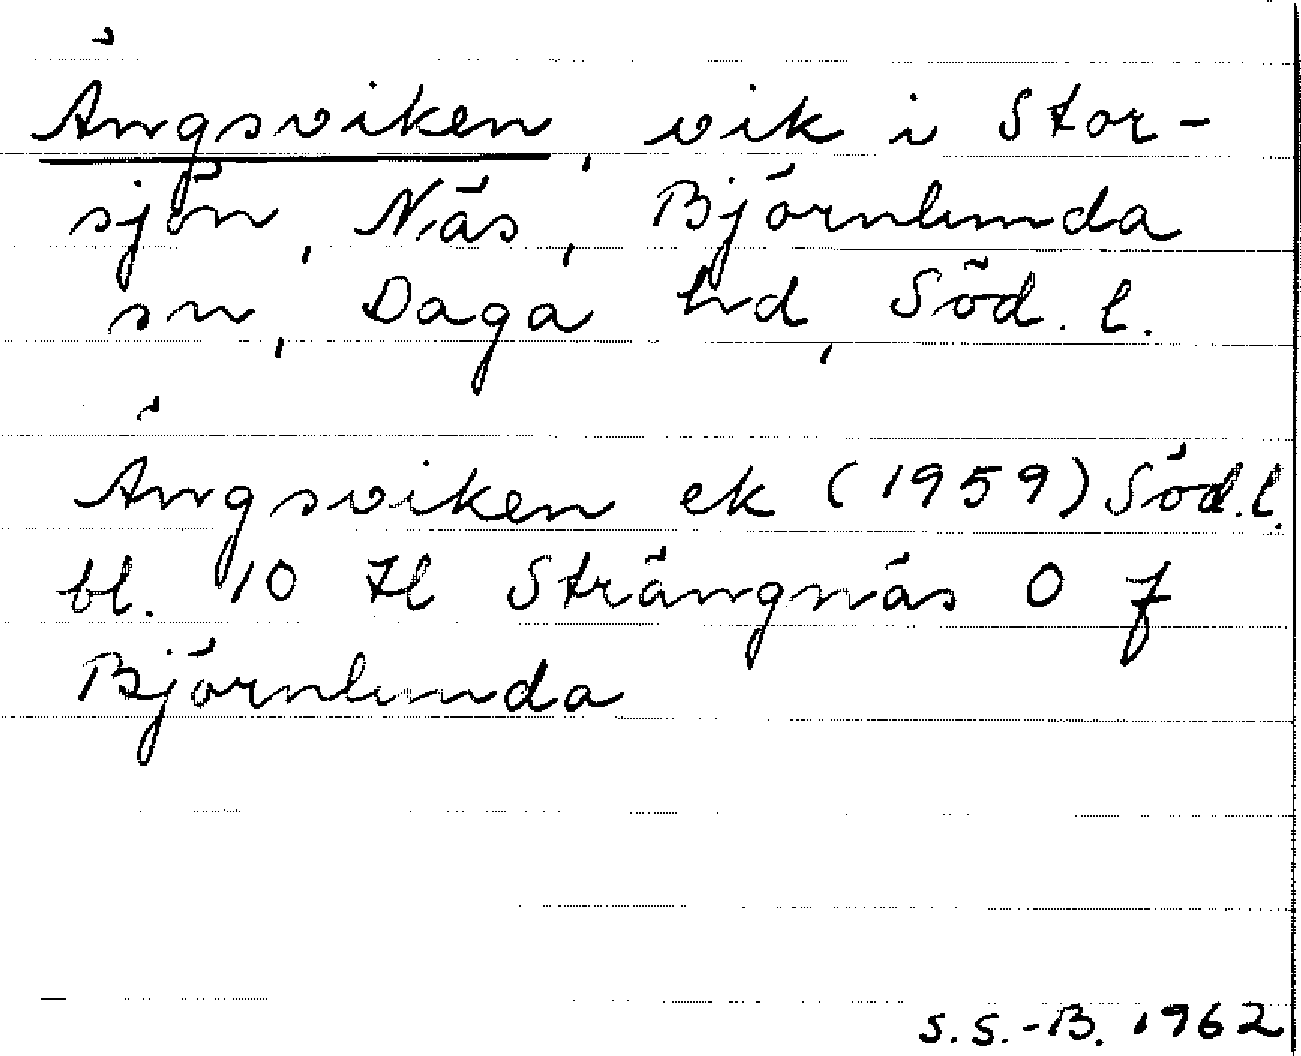 Ängsviken, vik i Stor-
sjön, Näs, Björnlunda
sn, Daga hd, Söd. l.
Ängsviken ek (1959) Söd. l.
bl. 10 H Strängnäs 0 f
Björnlunda
S.S.-B. 1962